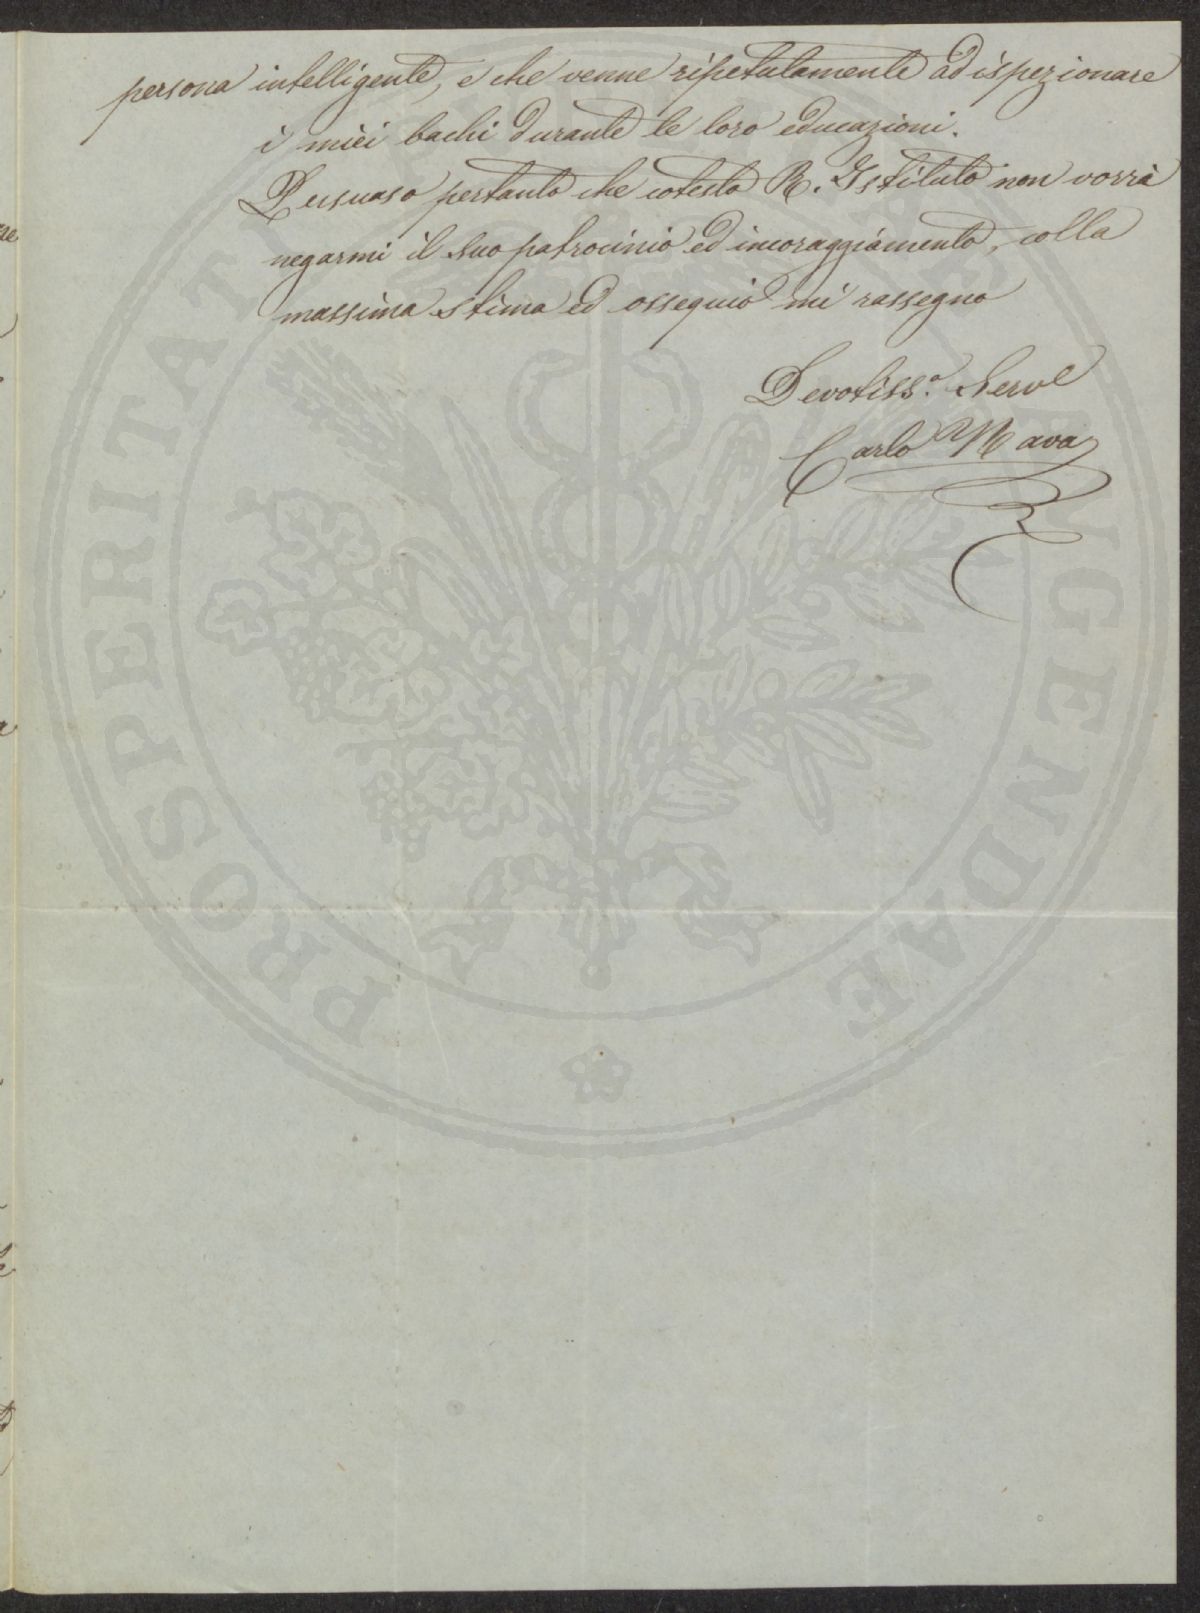 persona intelligente, e che venne ripetutamente ad ispezionare
i miei bachi durante le loro educazioni.
Persuaso pertanto che cotesto R. Istituto non vorrà
negarmi il suo patrocinio ed incoraggiamento, colla
massima stima ed ossequio mi rassegno
Devotiss.o Serve
Carlo Mava
PROSPERITATI AUGENDAE